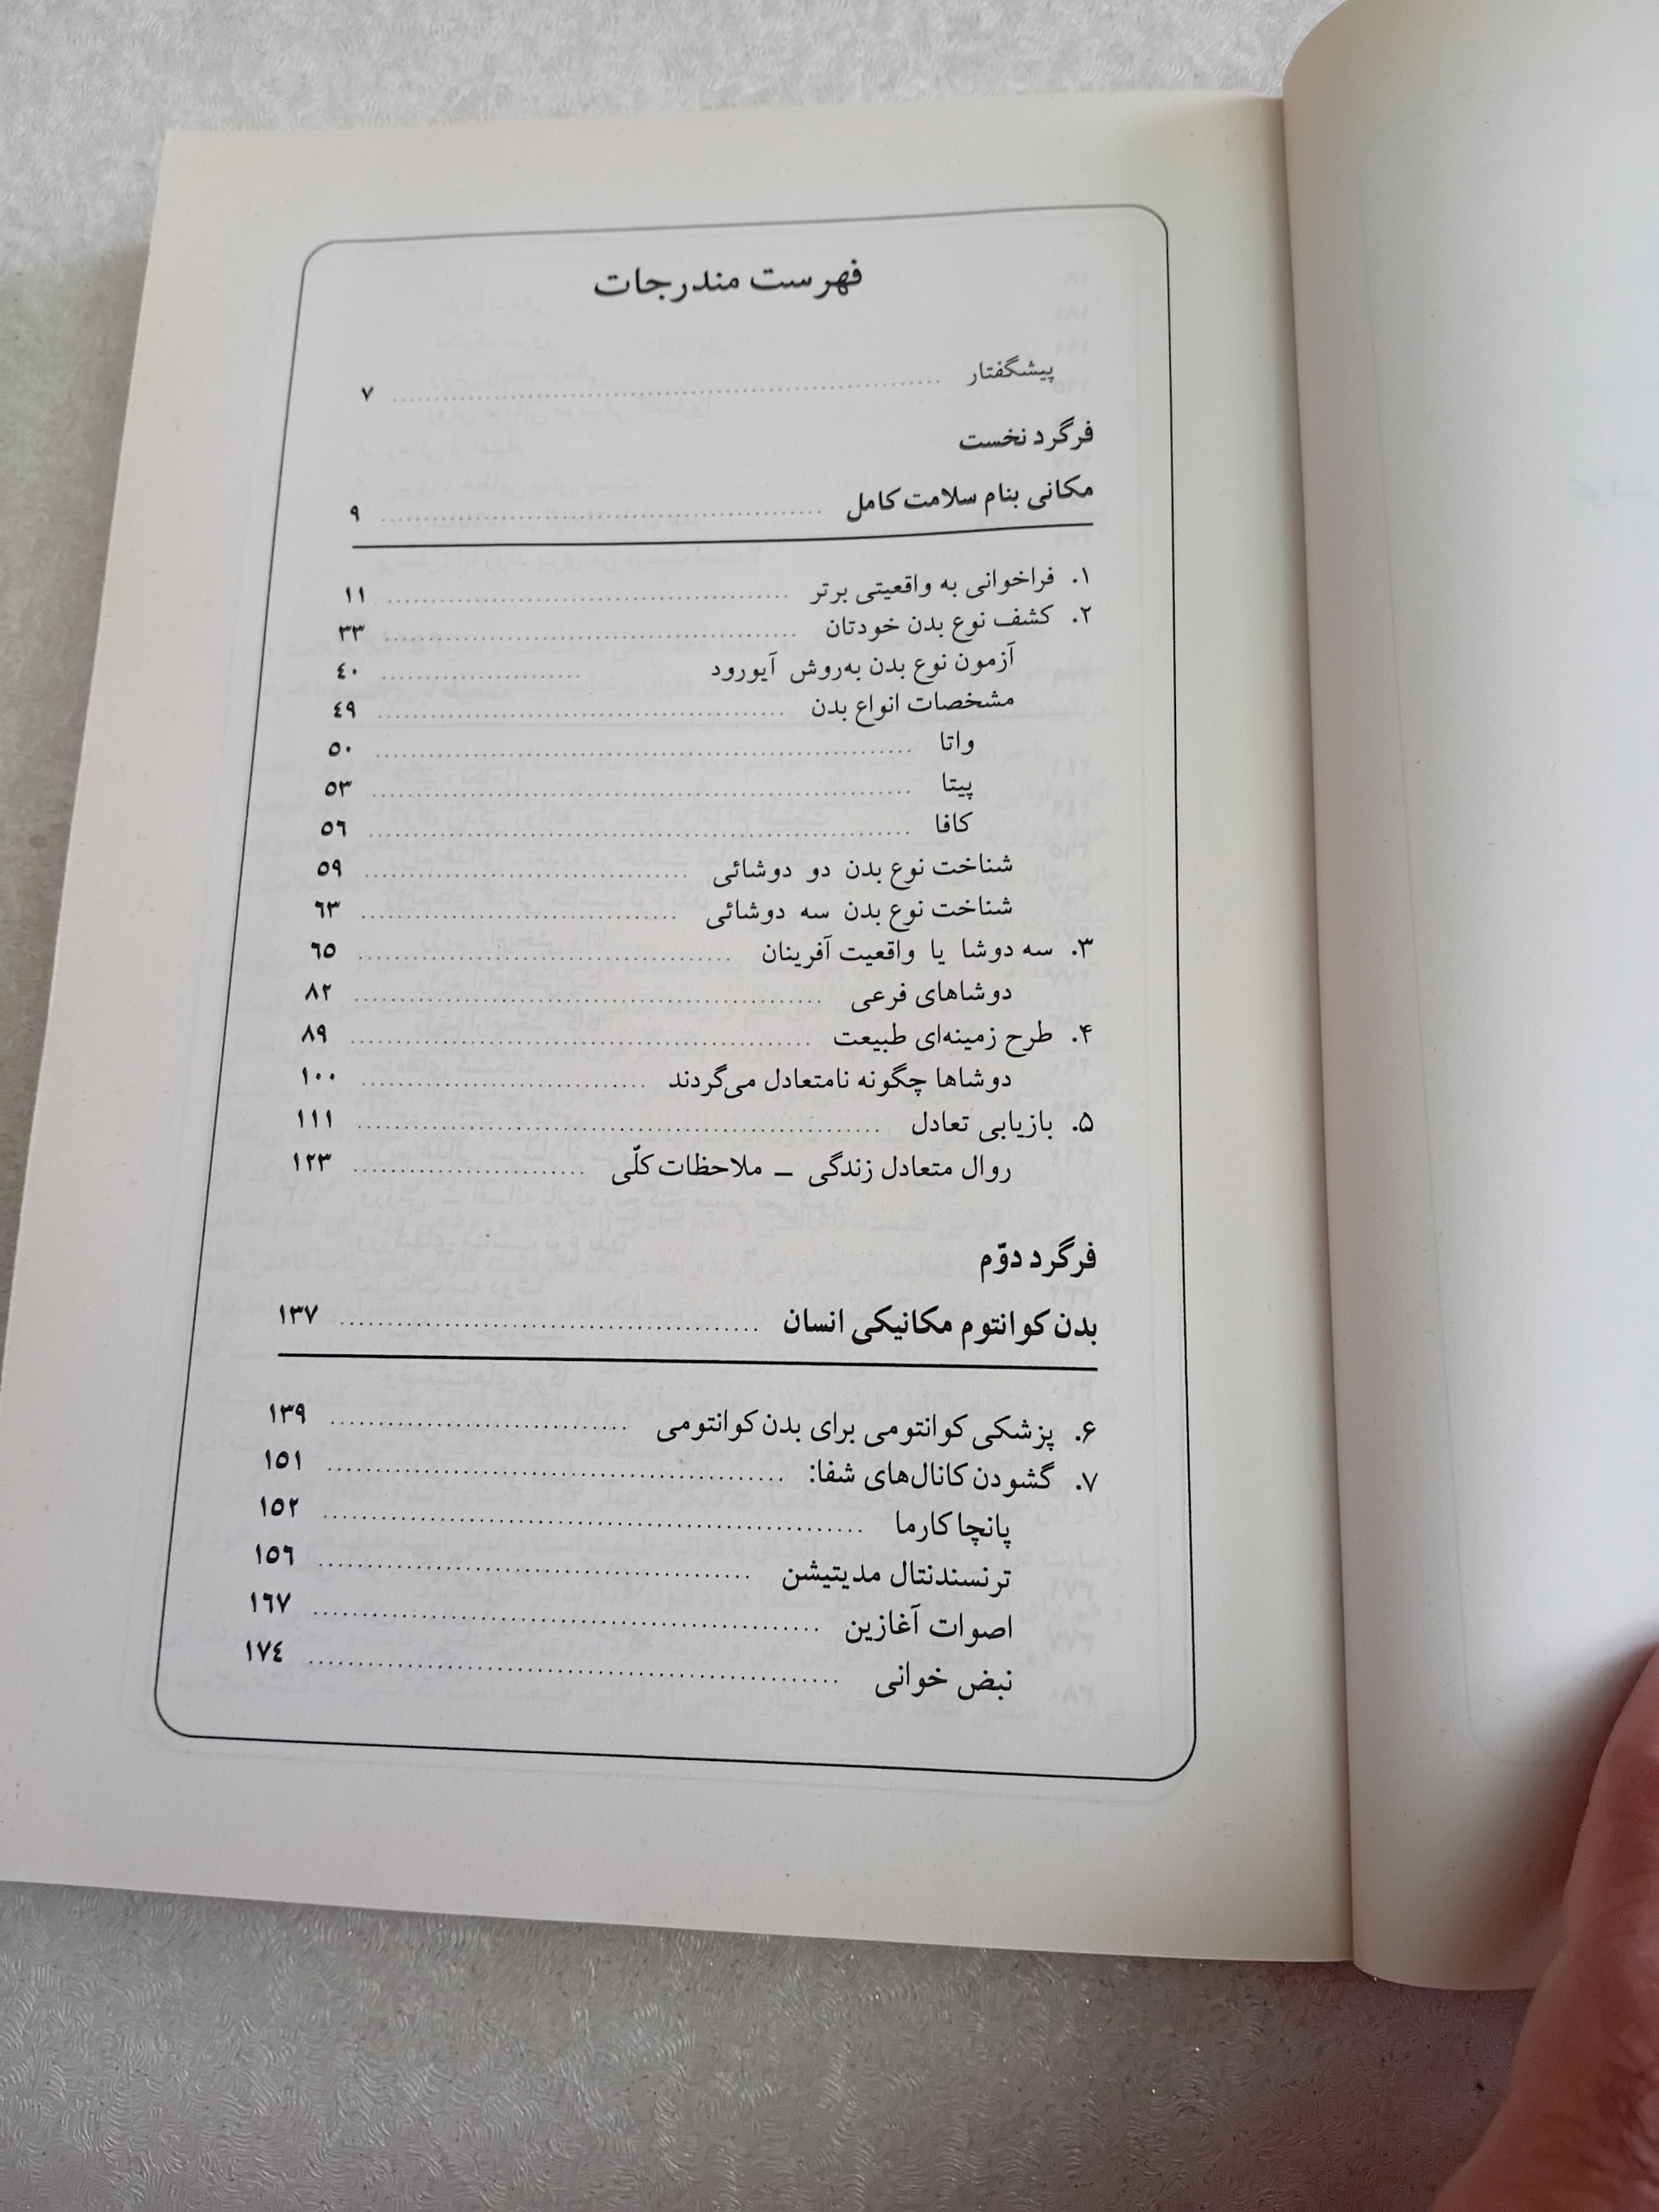 فهرست مندرجات
پیشگفتار ........ ٧
فرگرد نخست
مکانی بنام سلامت کامل ........ ٩
۱. فراخوانی به واقعیتی برتر ........ ١١
۲. کشف نوع بدن خودتان ........ ٣٣
آزمون نوع بدن به‌روش آیورود ........ ٤٠
مشخصات انواع بدن ........ ٤٩
واتا ........ ٥٠
پیتا ........ ٥٣
کافا ........ ٥٦
شناخت نوع بدن دو دوشائی ........ ٥٩
شناخت نوع بدن سه دوشائی ........ ٦٣
۳. سه دوشا یا واقعیت آفرینان ........ ٦٥
دوشاهای فرعی ........ ٨٢
۴. طرح زمینه‌ای طبیعت ........ ٨٩
دوشاها چگونه نامتعادل می‌گردند ........ ١٠٠
۵. بازیابی تعادل ........ ١١١
روال متعادل زندگی ــ ملاحظات کلّی ........ ١٢٣
فرگرد دوّم
بدن کوانتوم مکانیکی انسان ........ ١٣٧
۶. پزشکی کوانتومی برای بدن کوانتومی ........ ١٣٩
۷. گشودن کانال‌های شفا: ........ ١٥١
پانچاکارما ........ ١٥٢
ترنسندنتال مدیتیشن ........ ١٥٦
اصوات آغازین ........ ١٦٧
نبض خوانی ........ ١٧٤